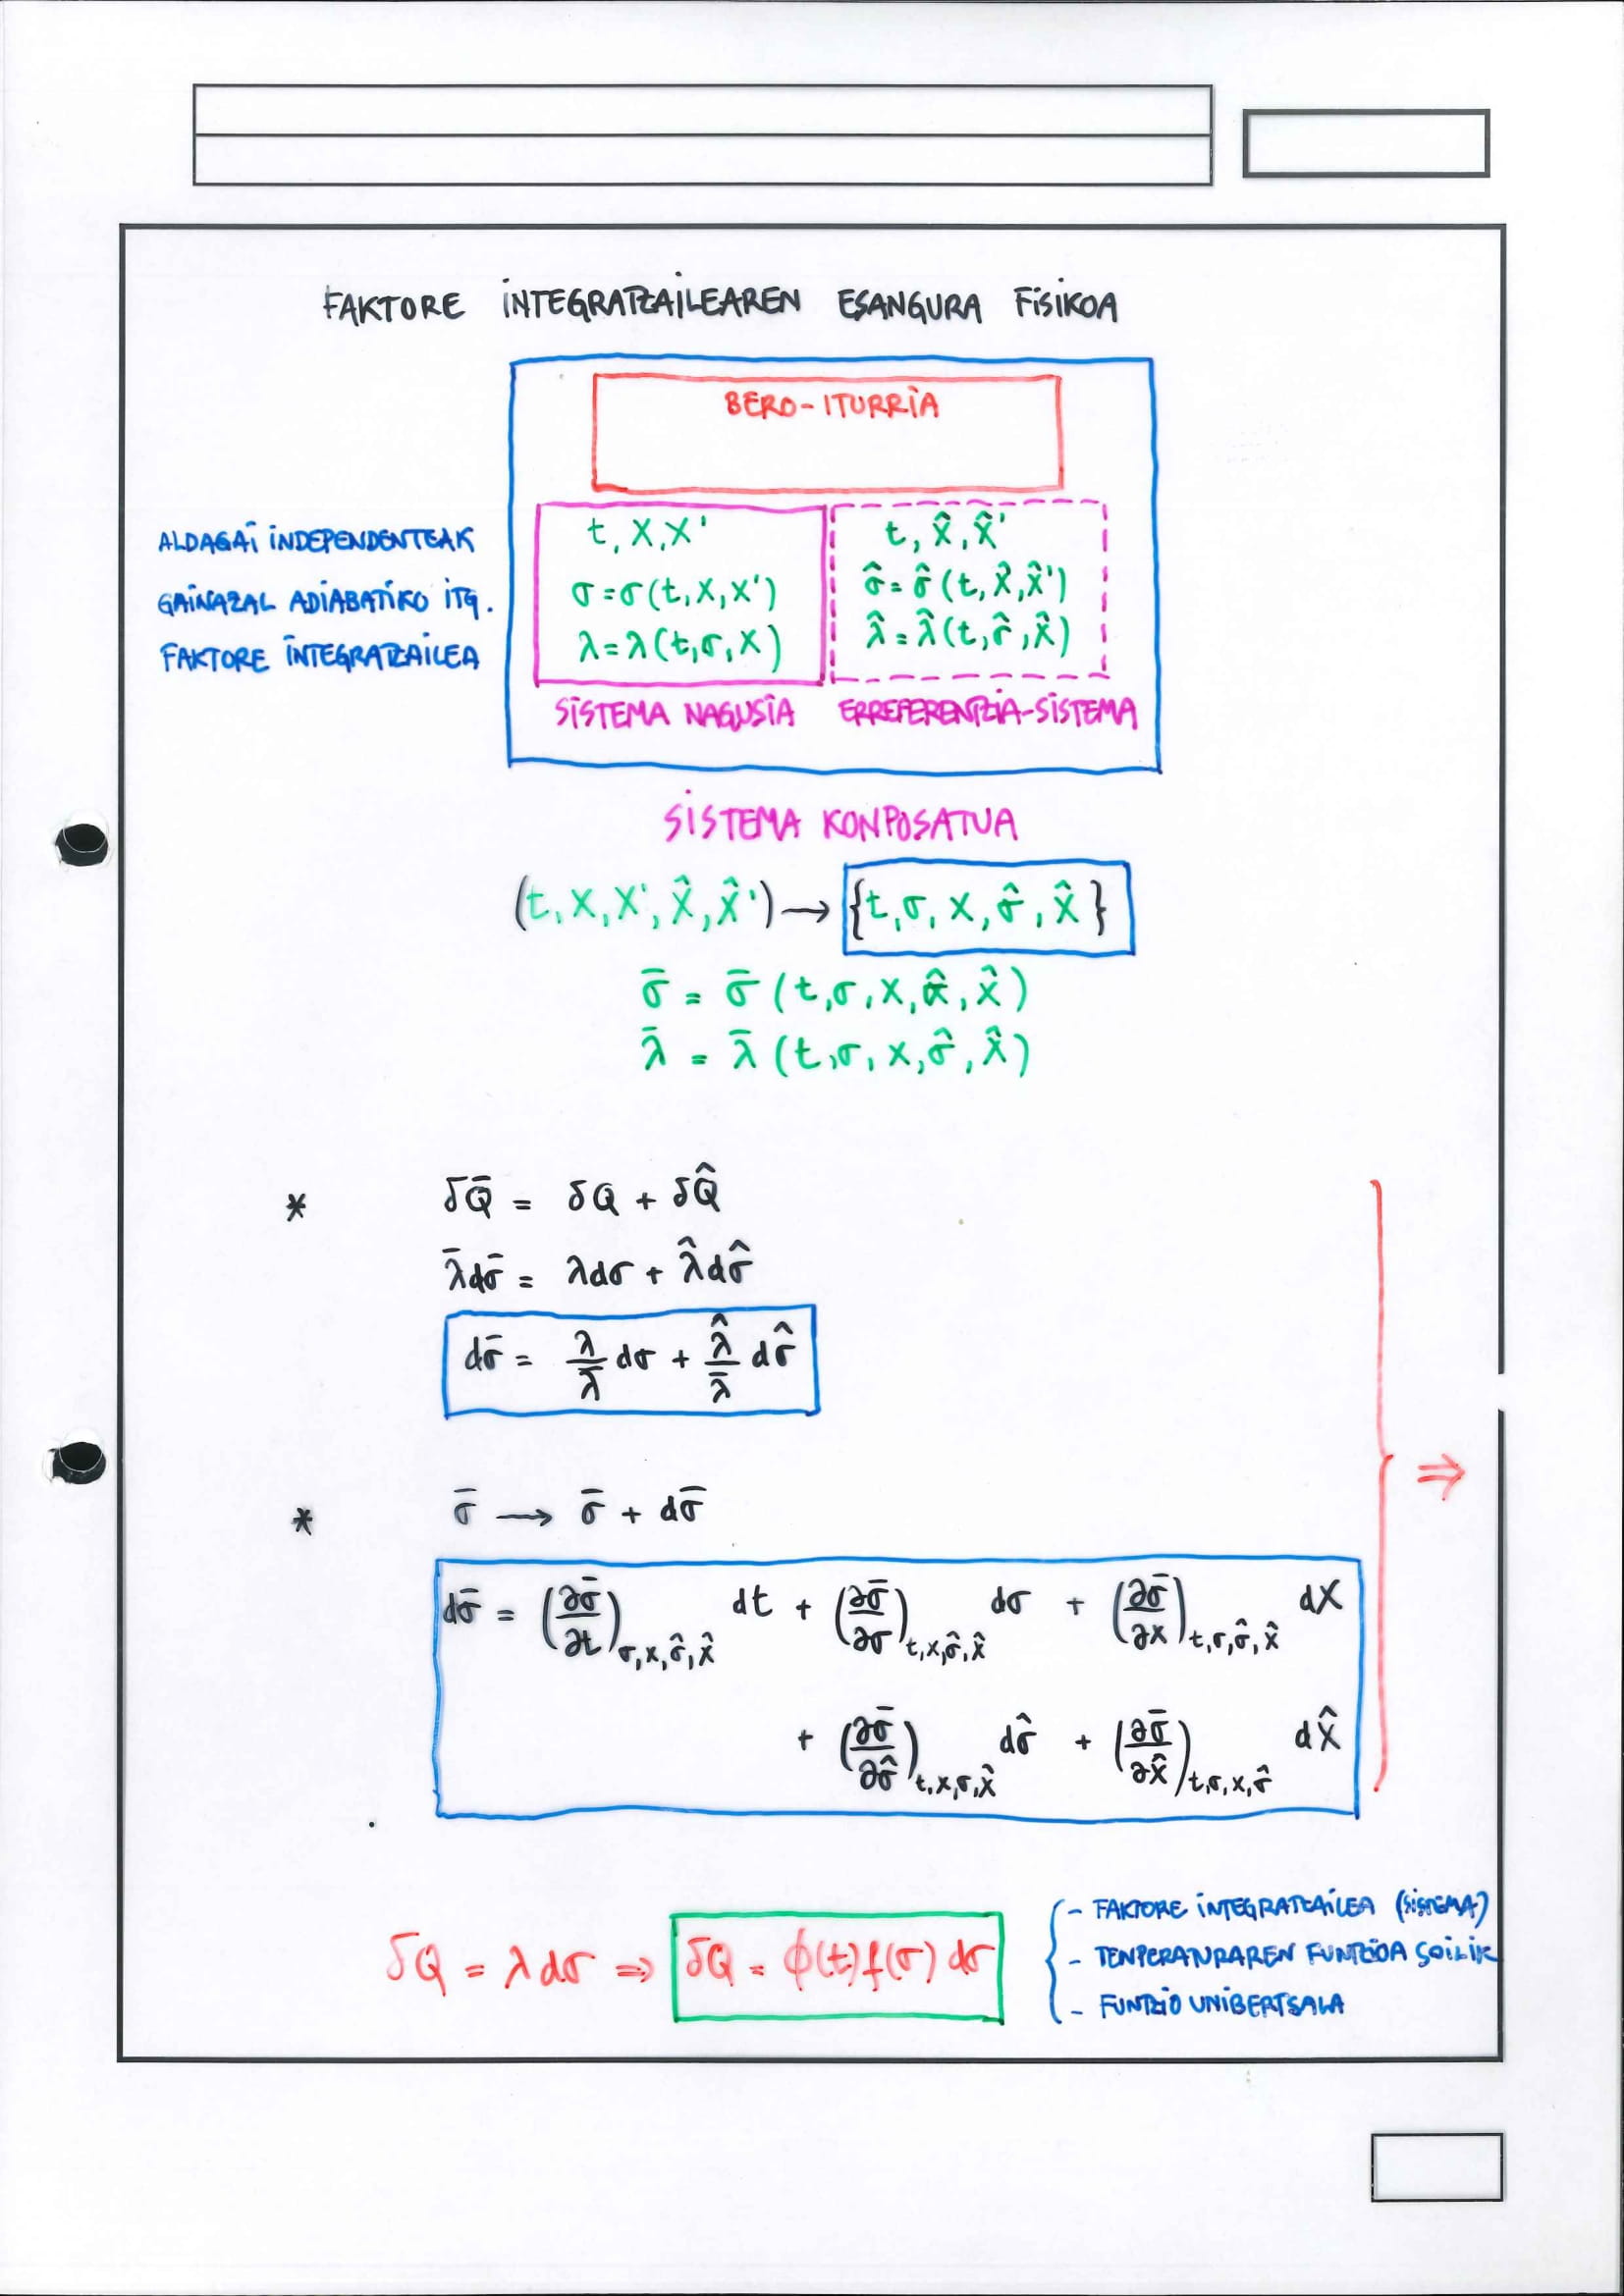 FAKTORE INTEGRATZAILEAREN ESANGURA FISIKOA
BERO-ITURRIA
ALDAGAI INDEPENDENTEAK
GAINAZAL ADIABATIKO ITG.
FAKTORE INTEGRATZAILEA
t, X, X'
σ = σ(t, X, X')
λ = λ(t, σ, X)
t, X̂, X̂'
σ̂ = σ̂(t, X̂, X̂')
λ̂ = λ̂(t, σ̂, X̂)
SISTEMA NAGUSIA
ERREFERENTZIA-SISTEMA
SISTEMA KONPOSATUA
(t, X, X', X̂, X̂') → {t, σ, X, σ̂, X̂}
σ̄ = σ̄ (t, σ, X, σ̂, X̂)
λ̄ = λ̄ (t, σ, X, σ̂, X̂)
* δQ̄ = δQ + δQ̂
λ̄dσ̄ = λdσ + λ̂dσ̂
dσ̄ = λ/λ̄ dσ + λ̂/λ̄ dσ̂
* σ̄ → σ̄ + dσ̄
dσ̄ = (∂σ̄/∂t)σ,X,σ̂,X̂ dt + (∂σ̄/∂σ)t,X,σ̂,X̂ dσ + (∂σ̄/∂X)t,σ,σ̂,X̂ dX
+ (∂σ̄/∂σ̂)t,X,σ,X̂ dσ̂ + (∂σ̄/∂X̂)t,σ,X,σ̂ dX̂
⇒
δQ = λdσ ⇒ δQ = ϕ(t)f(σ)dσ
- FAKTORE INTEGRATZAILEA (SISTEMA)
- TENPERATURAREN FUNTZIOA SOILIK
- FUNTZIO UNIBERTSALA